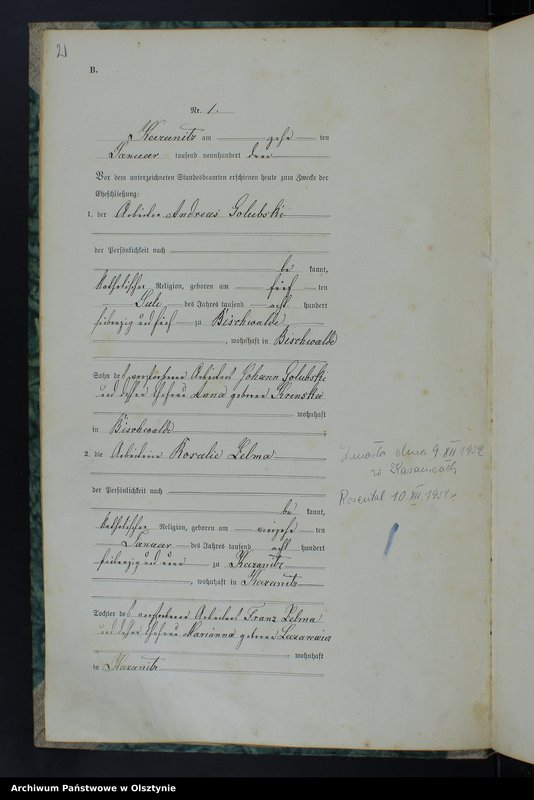 21
B.
Nr. 1.
Kazanitz am zehn ten
Januar tausend neunhundert drei
Vor dem unterzeichneten Standesbeamten erschienen heute zum Zwecke der
Eheschließung:
1. der Arbeiter Andreas Golubski
der Persönlichkeit nach
be kannt,
katholischer Religion, geboren am fünf ten
Juli des Jahres tausend acht hundert
siebenzig und fünf zu Bischwalde
, wohnhaft in Bischwalde
Sohn des verstorbenen Arbeiters Johann Golubski
und dessen Ehefrau Anna geborene
wohnhaft
in Bischwalde ;
2. die Arbeiterin Rosalie Zelma
der Persönlichkeit nach
be kannt,
katholischer Religion, geboren am vierzehn ten
Januar des Jahres tausend acht hundert
siebenzig und neun zu Kazanitz
, wohnhaft in Kazanitz
Tochter des verstorbenen Arbeiters Franz Zelma
und dessen Ehefrau Marianna geborene
wohnhaft
in Kazanitz
Zmarła dnia 9 XII 1952
w Kazanicach
Rosental 10 XII 1952 r
Archiwum Państwowe w Olsztynie